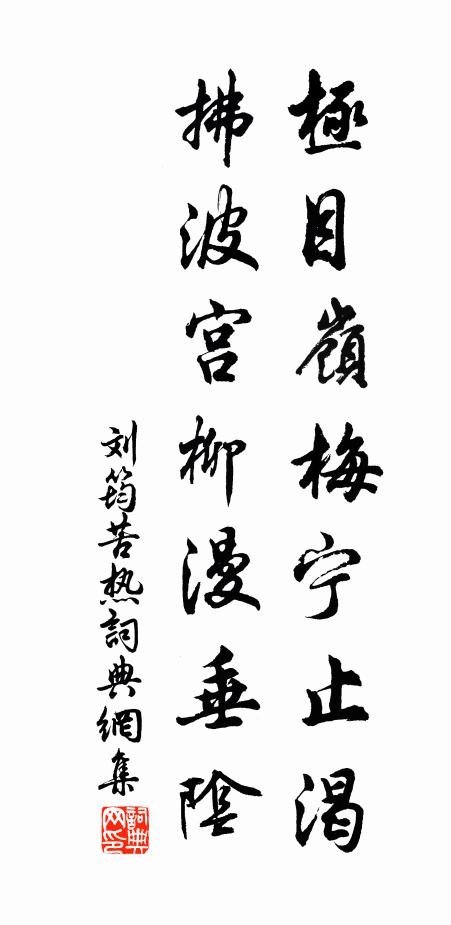 極目嶺梅宁止渴
拂波宫柳漫垂陰
刘筠苦热詞典網集
詞典网印